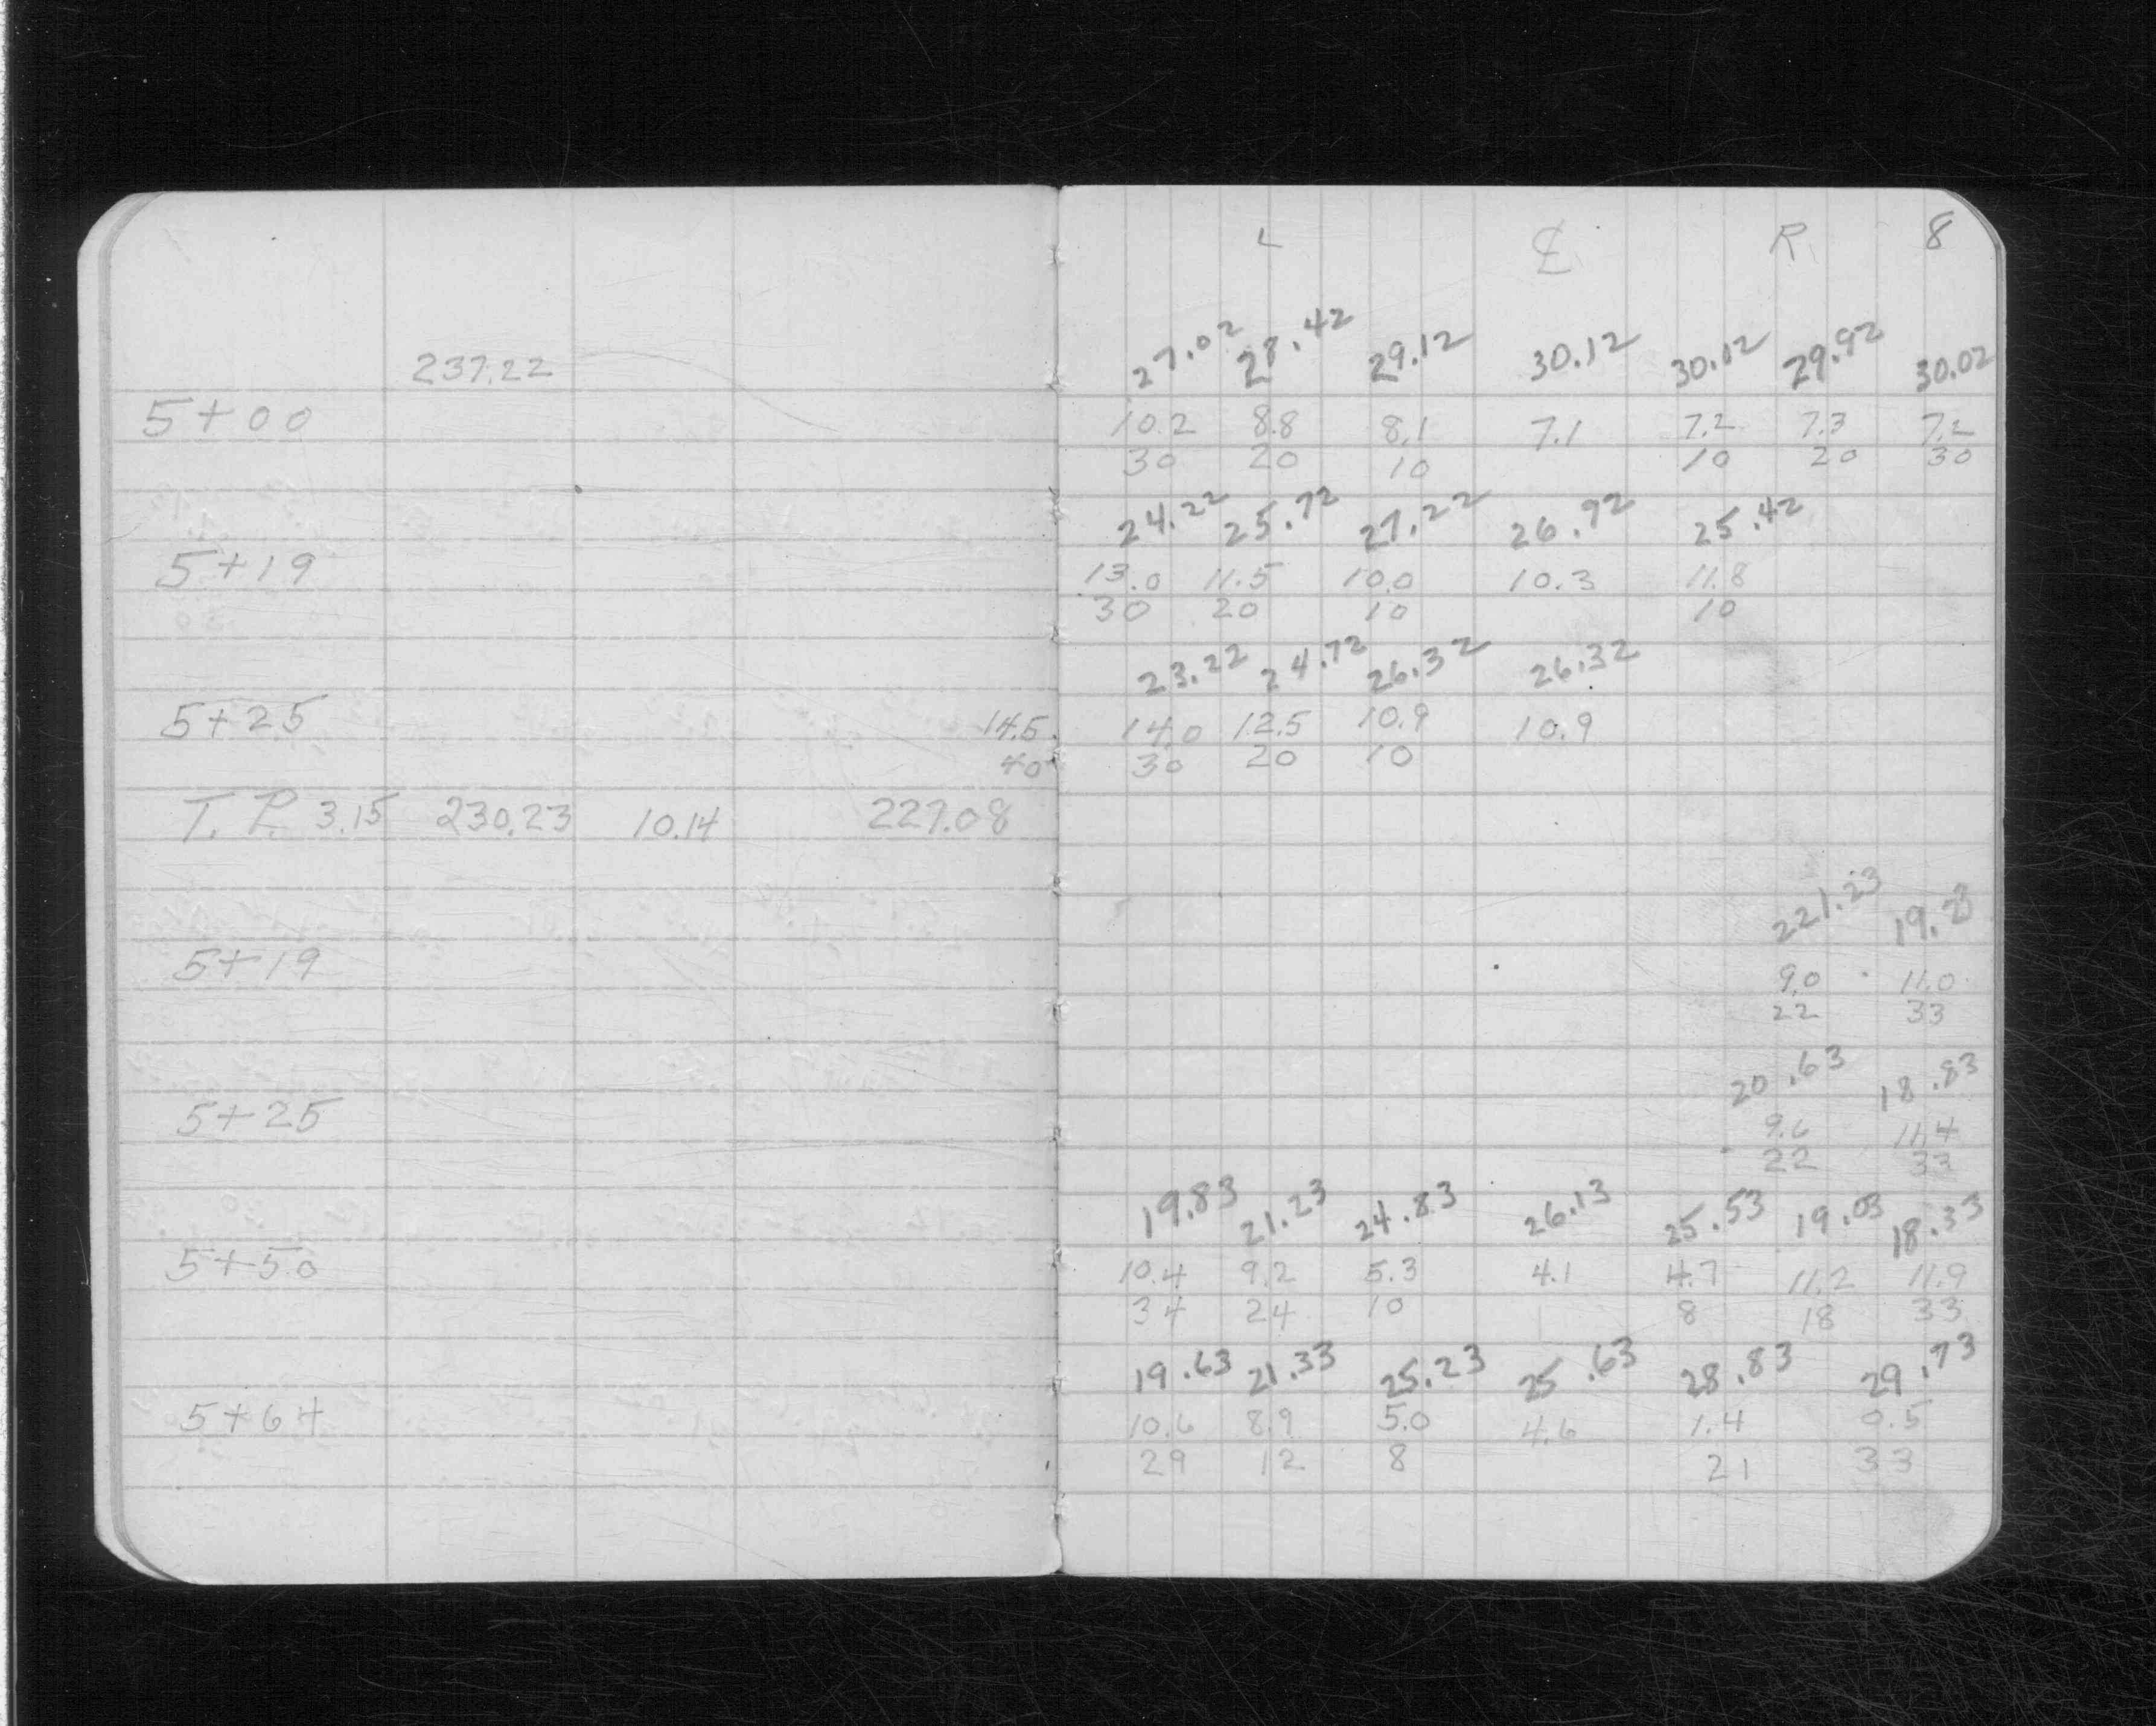 L ℄ R 8
237.22 27.02 28.42 29.12 30.12 30.12 29.92 30.02
5+00 10.2 8.8 8.1 7.1 7.2 7.3 7.2
30 20 10 10 20 30
24.22 25.72 27.22 26.92 25.42
5+19 13.0 11.5 10.0 10.3 11.8
30 20 10 10
23.22 24.72 26.32 26.32
5+25 14.5 14.0 12.5 10.9 10.9
40 30 20 10
T. P. 3.15 230.23 10.14 227.08
221.23 19.23
5+19 9.0 11.0
22 33
20.63 18.83
5+25 9.6 11.4
22 33
19.83 21.23 24.83 26.13 25.53 19.03 18.33
5+50 10.4 9.2 5.3 4.1 4.7 11.2 11.9
34 24 10 8 18 33
19.63 21.33 25.23 25.63 28.83 29.73
5+64 10.6 8.9 5.0 4.6 1.4 0.5
29 12 8 21 33